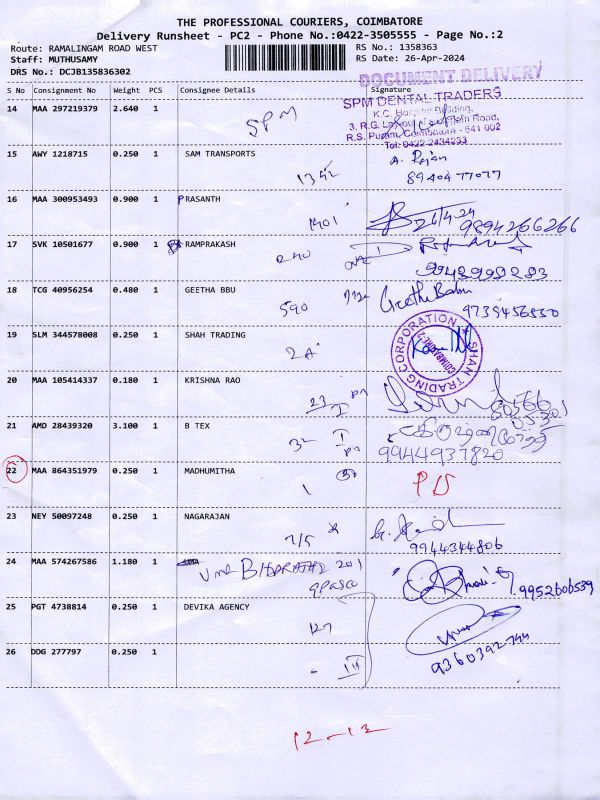 THE PROFESSIONAL COURIERS, COIMBATORE
Delivery Runsheet - PC2 - Phone No.:0422-3505555 - Page No.:2
Route: RAMALINGAM ROAD WEST
RS No.: 1358363
Staff: MUTHUSAMY
RS Date: 26-Apr-2024
DRS No.: DCJB135836302
DOCUMENT DELIVERY
S No Consignment No Weight PCS Consignee Details Signature
14 MAA 297219379 2.640 1 SPM
SPM DENTAL TRADERS
K.C. Hospital Building,
R.S. Puram, Coimbatore - 641 002
Tel: 0422-2434233
15 AWY 1218715 0.250 1 SAM TRANSPORTS
1342
A. Rajan
89404 77077
16 MAA 300953493 0.900 1 PRASANTH
1401
26/4-24
9894266266
17 SVK 10501677 0.900 1 RAMPRAKASH
240
9942999283
18 TCG 40956254 0.480 1 GEETHA BBU
590
Geetha Babu
9739456850
19 SLM 344578008 0.250 1 SHAH TRADING
2A
SHAH TRADING CORPORATION
COIMBATORE-2
20 MAA 105414337 0.180 1 KRISHNA RAO
23
I
21 AMD 28439320 3.100 1 B TEX
32 I
9944937820
22 MAA 864351979 0.250 1 MADHUMITHA
1
23 NEY 50097248 0.250 1 NAGARAJAN
7/5
9944344806
24 MAA 574267586 1.180 1
BHARATHI 201
9952606539
25 PGT 4738814 0.250 1 DEVIKA AGENCY
127
9360392744
26 DDG 277797 0.250 1
III
12-12